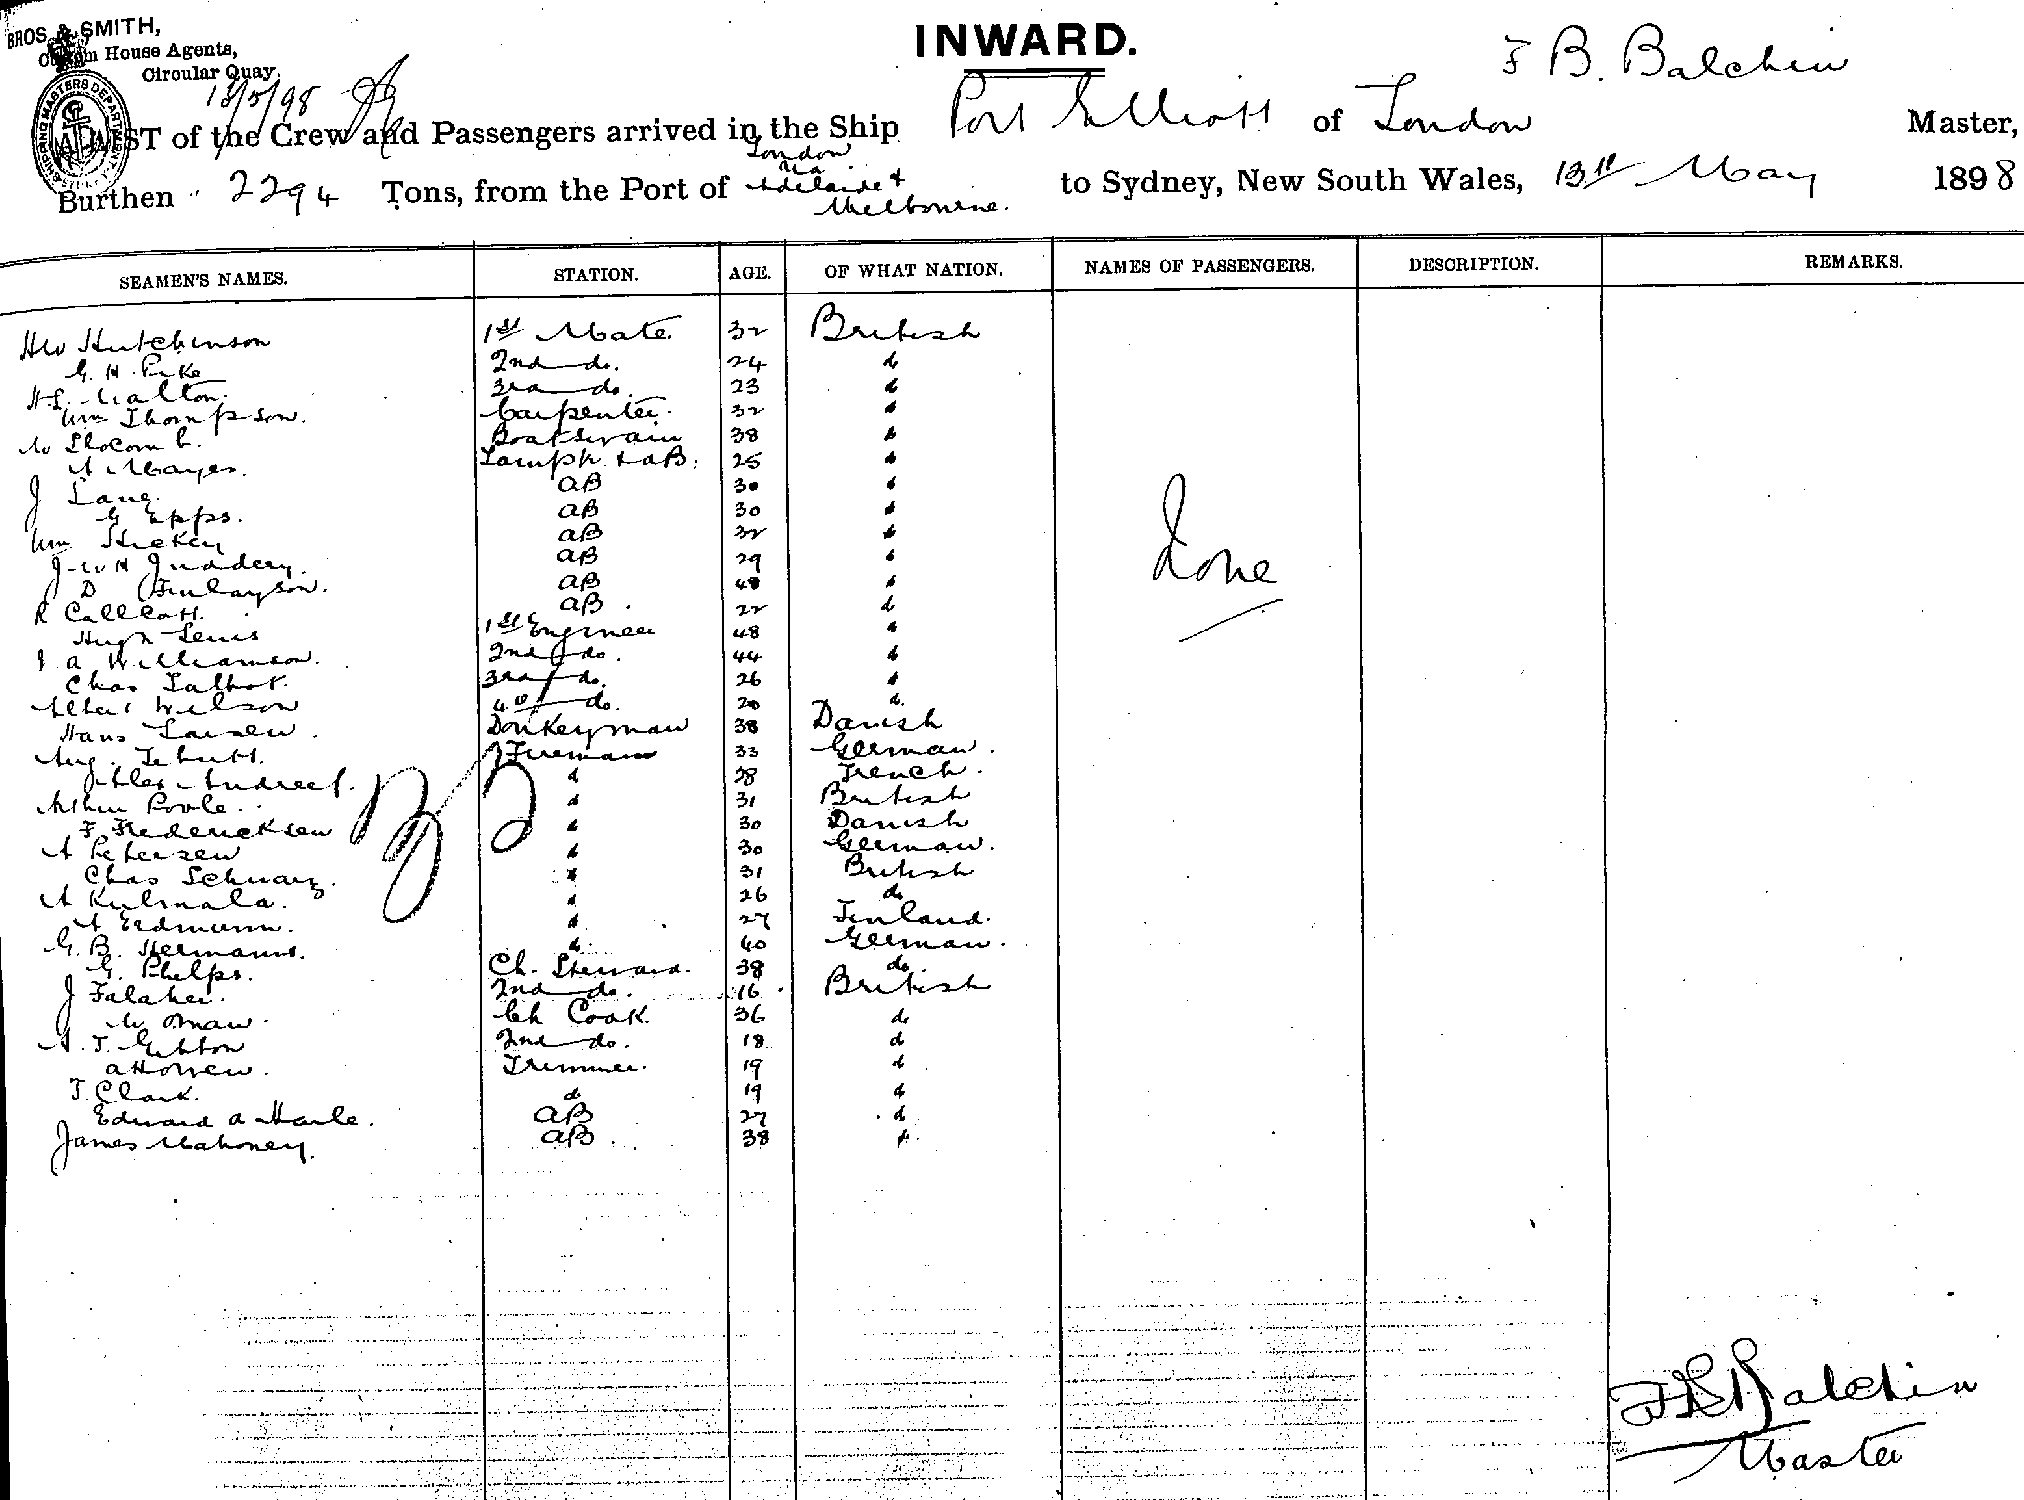 BROS. & SMITH,
Custom House Agents,
Circular Quay.
13/5/98
INWARD.
F B. Balchin
A LIST of the Crew and Passengers arrived in the Ship Port Elliott of London Master,
Burthen 2294 Tons, from the Port of London via Adelaide & Melbourne. to Sydney, New South Wales, 13th May 1898
SHIPPING MASTERS DEPARTMENT
SEAMEN'S NAMES. STATION. AGE. OF WHAT NATION. NAMES OF PASSENGERS. DESCRIPTION. REMARKS.
Hutchinson 1st Mate 32 British
G. H. Pike 2nd do. 24 d
H S. Walton 3rd do. 23 d
Wm Thompson. Carpenter. 32 d
W Slocomb. Boatswain 38 d
A Mayes. Lamps & AB. 25 d
J Lang. AB 30 d
G Epps. AB 30 d
Wm Hickey AB 32 d
J. W H AB 29 d
D Finlayson. AB 48 d
R Callcott. AB 22 d
Hugh Lewis 1st Engineer 48 d
J A Williamson. 2nd do. 44 d
Chas Talbot. 3rd do. 26 d
Albert Wilson 4th do. 20 d
Hans Larsen. Donkeyman 38 Danish
Aug. Fireman 33 German.
Alex Andreef. d 28 French.
Arthur Poole. d 31 British
F. Fredericksen d 30 Danish
A Petersen d 30 German.
Chas Schwarz. d 31 British
A Kulmala. d 26 do
A Erdmann. d 27 Finland.
G. B. Hermanns. d 40 German.
G. Phelps. Ch. Steward. 38 do.
J Falaher. 2nd do. 16 British
W Ch Cook 36 d
A. T. Gibbon 2nd do. 18 d
Trimmer. 19 d
T. Clark. d 19 d
Edward A Harle. AB 27 d
James Mahoney. AB 38 d
None
F B Balchin
Master